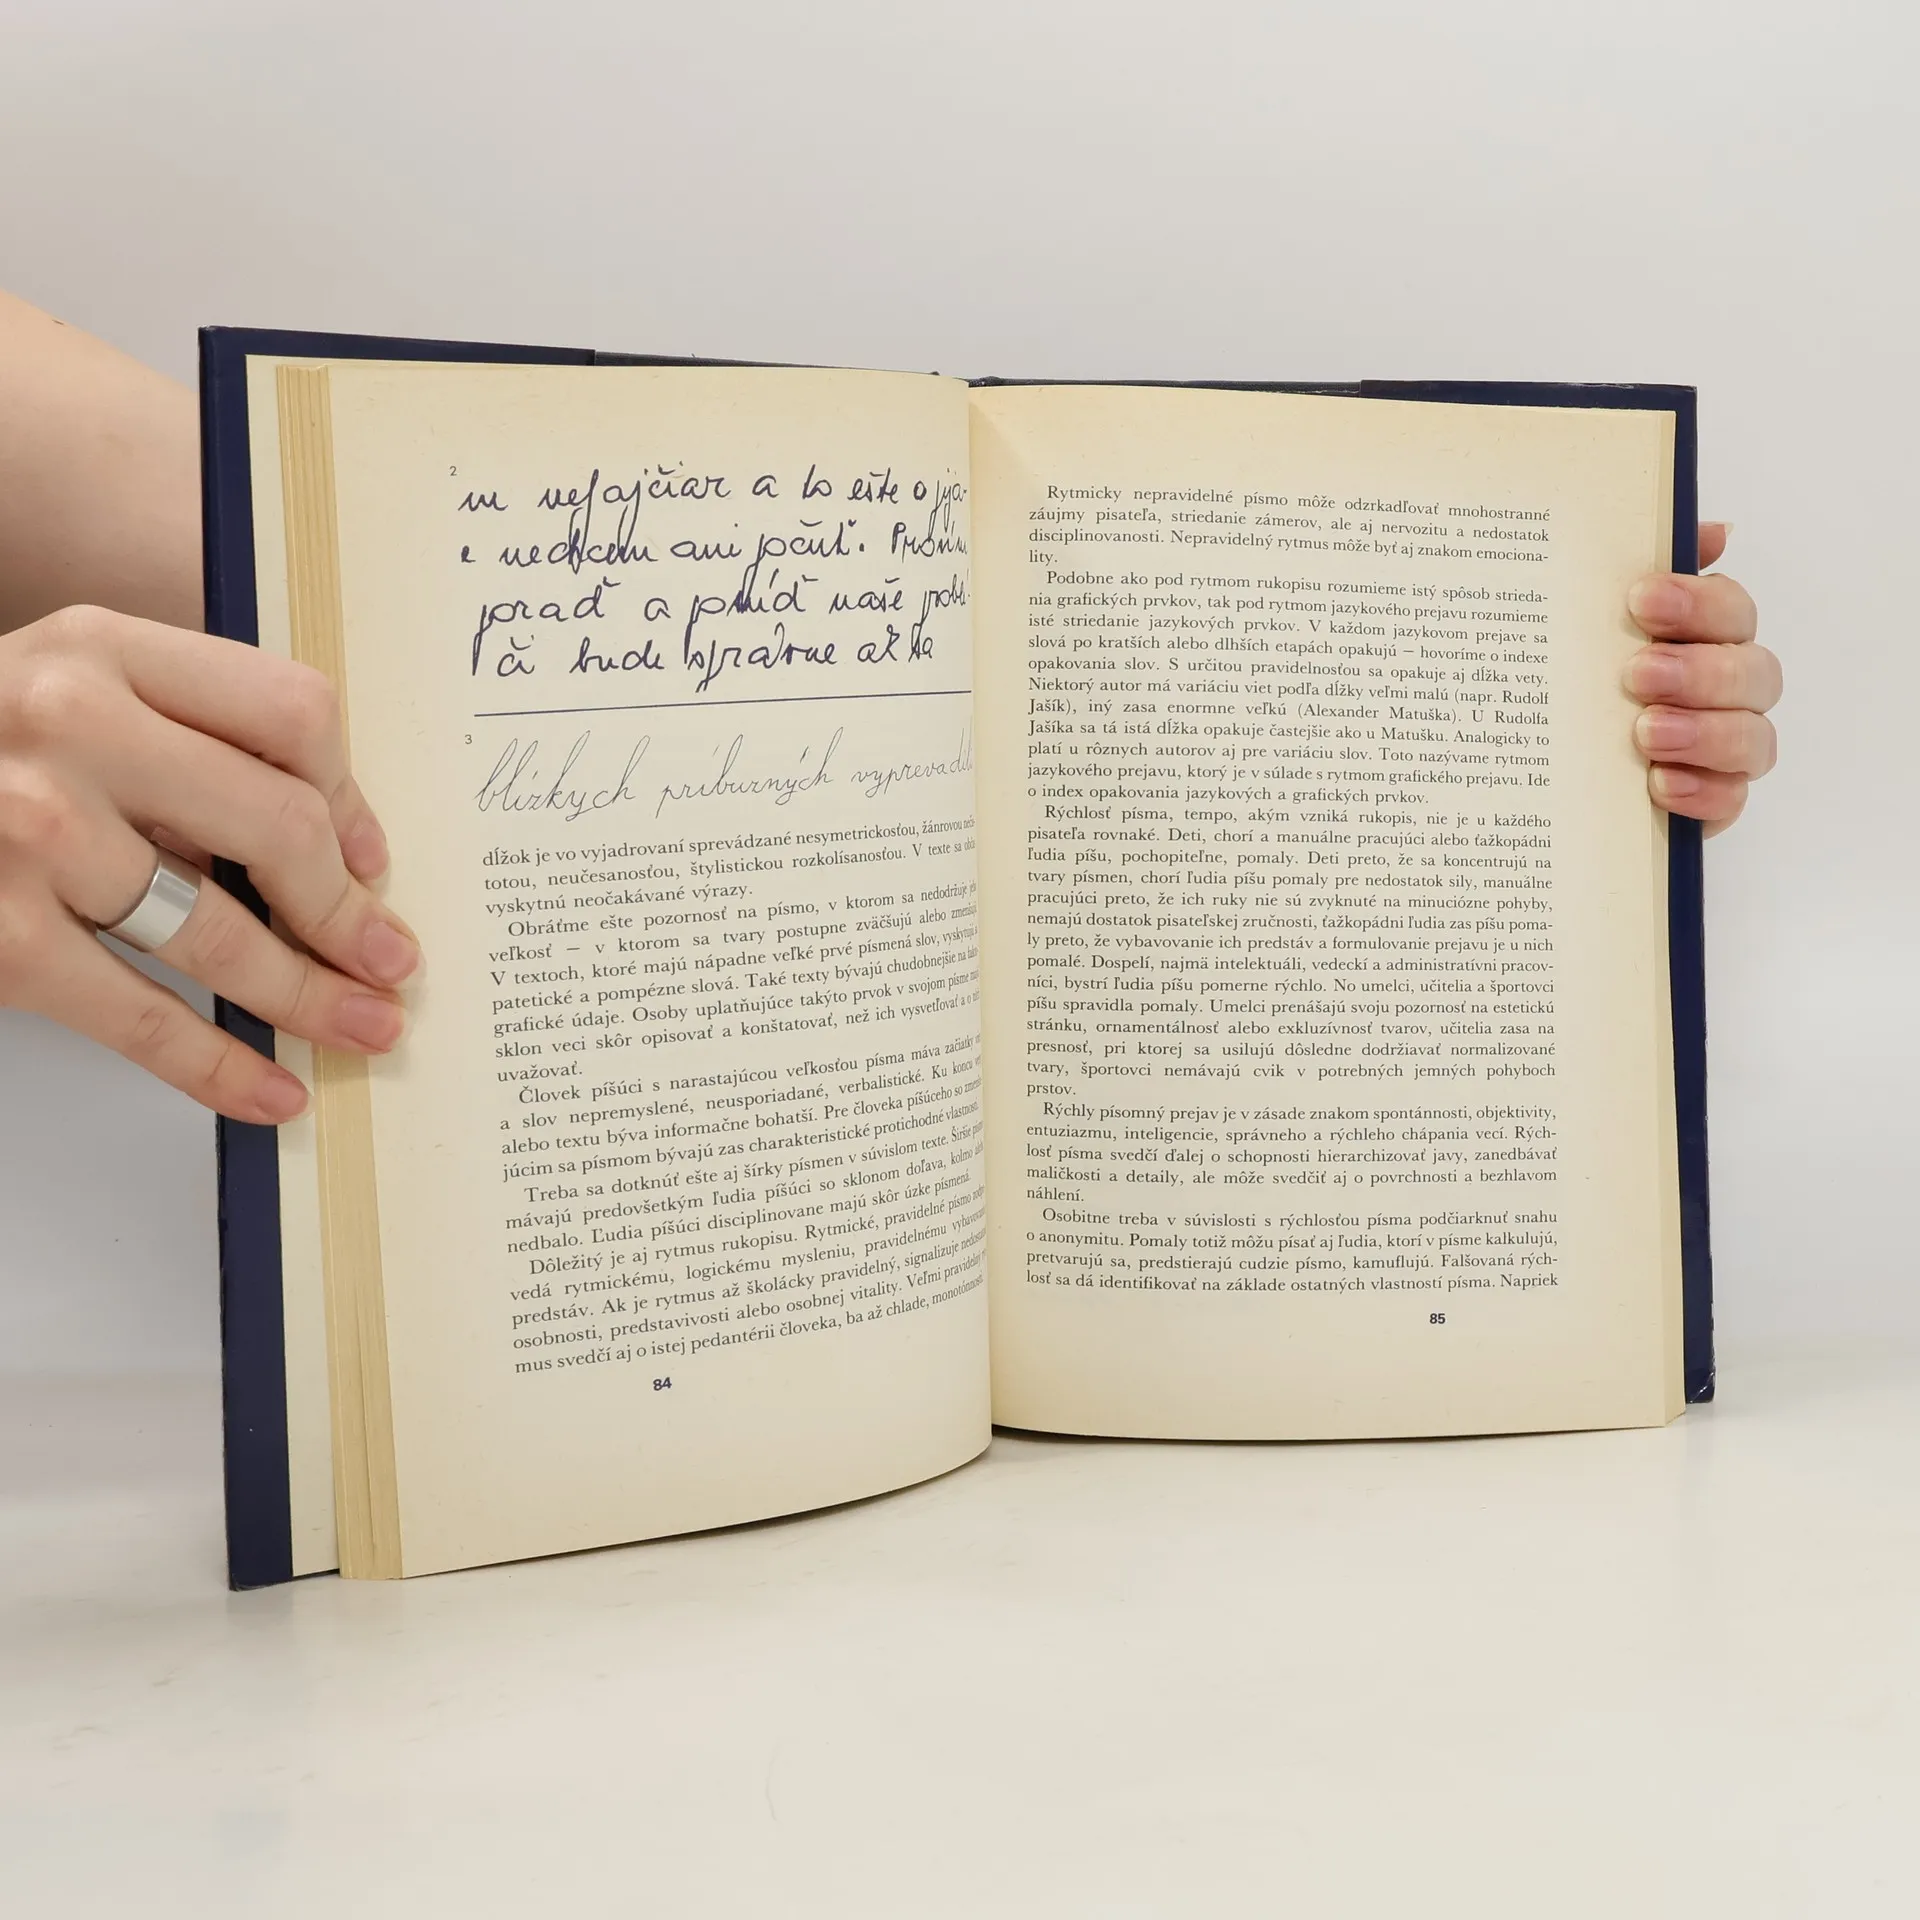 2
m nefajčiar a to ešte o
nechcem ani počuť. Prosím
poraď a príď naše
či bude správne ak sa
3
blízkych príbuzných vyprevadili
dĺžok je vo vyjadrovaní sprevádzané nesymetrickosťou, žánrovou
totou, neučesanosťou, štylistickou rozkolísanosťou. V texte sa
vyskytnú neočakávané výrazy.
Obráťme ešte pozornosť na písmo, v ktorom sa nedodržuje
veľkosť — v ktorom sa tvary postupne zväčšujú alebo zmenšujú.
V textoch, ktoré majú nápadne veľké prvé písmená slov, vyskytujú
patetické a pompézne slová. Také texty bývajú chudobnejšie na
grafické údaje. Osoby uplatňujúce takýto prvok v svojom písme
sklon veci skôr opisovať a konštatovať, než ich vysvetľovať a o
uvažovať.
Človek píšúci s narastajúcou veľkosťou písma máva začiatky
a slov nepremyslené, neusporiadané, verbalistické. Ku koncu
alebo textu býva informačne bohatší. Pre človeka píšúceho so
júcim sa písmom bývajú zas charakteristické protichodné vlastnosti.
Treba sa dotknúť ešte aj šírky písmen v súvislom texte. Širšie
mávajú predovšetkým ľudia píšúci so sklonom doľava, kolmo
nedbalo. Ľudia píšúci disciplinovane majú skôr úzke písmená.
Dôležitý je aj rytmus rukopisu. Rytmické, pravidelné písmo
vedá rytmickému, logickému mysleniu, pravidelnému
predstáv. Ak je rytmus až školácky pravidelný, signalizuje
osobnosti, predstavivosti alebo osobnej vitality. Veľmi pravidelný
mus svedčí aj o istej pedantérii človeka, ba až chlade,
84
Rytmicky nepravidelné písmo môže odzrkadľovať mnohostranné
záujmy pisateľa, striedanie zámerov, ale aj nervozitu a nedostatok
disciplinovanosti. Nepravidelný rytmus môže byť aj znakom emociona-
lity.
Podobne ako pod rytmom rukopisu rozumieme istý spôsob strieda-
nia grafických prvkov, tak pod rytmom jazykového prejavu rozumieme
isté striedanie jazykových prvkov. V každom jazykovom prejave sa
slová po kratších alebo dlhších etapách opakujú — hovoríme o indexe
opakovania slov. S určitou pravidelnosťou sa opakuje aj dĺžka vety.
Niektorý autor má variáciu viet podľa dĺžky veľmi malú (napr. Rudolf
Jašík), iný zasa enormne veľkú (Alexander Matuška). U Rudolfa
Jašíka sa tá istá dĺžka opakuje častejšie ako u Matušku. Analogicky to
platí u rôznych autorov aj pre variáciu slov. Toto nazývame rytmom
jazykového prejavu, ktorý je v súlade s rytmom grafického prejavu. Ide
o index opakovania jazykových a grafických prvkov.
Rýchlosť písma, tempo, akým vzniká rukopis, nie je u každého
pisateľa rovnaké. Deti, chorí a manuálne pracujúci alebo ťažkopádni
ľudia píšu, pochopiteľne, pomaly. Deti preto, že sa koncentrujú na
tvary písmen, chorí ľudia píšu pomaly pre nedostatok sily, manuálne
pracujúci preto, že ich ruky nie sú zvyknuté na minuciózne pohyby,
nemajú dostatok pisateľskej zručnosti, ťažkopádni ľudia zas píšu poma-
ly preto, že vybavovanie ich predstáv a formulovanie prejavu je u nich
pomalé. Dospelí, najmä intelektuáli, vedeckí a administratívni pracov-
níci, bystrí ľudia píšu pomerne rýchlo. No umelci, učitelia a športovci
píšu spravidla pomaly. Umelci prenášajú svoju pozornosť na estetickú
stránku, ornamentálnosť alebo exkluzívnosť tvarov, učitelia zasa na
presnosť, pri ktorej sa usilujú dôsledne dodržiavať normalizované
tvary, športovci nemávajú cvik v potrebných jemných pohyboch
prstov.
Rýchly písomný prejav je v zásade znakom spontánnosti, objektivity,
entuziazmu, inteligencie, správneho a rýchleho chápania vecí. Rých-
losť písma svedčí ďalej o schopnosti hierarchizovať javy, zanedbávať
maličkosti a detaily, ale môže svedčiť aj o povrchnosti a bezhlavom
náhlení.
Osobitne treba v súvislosti s rýchlosťou písma podčiarknuť snahu
o anonymitu. Pomaly totiž môžu písať aj ľudia, ktorí v písme kalkulujú,
pretvarujú sa, predstierajú cudzie písmo, kamuflujú. Falšovaná rých-
losť sa dá identifikovať na základe ostatných vlastností písma. Napriek
85